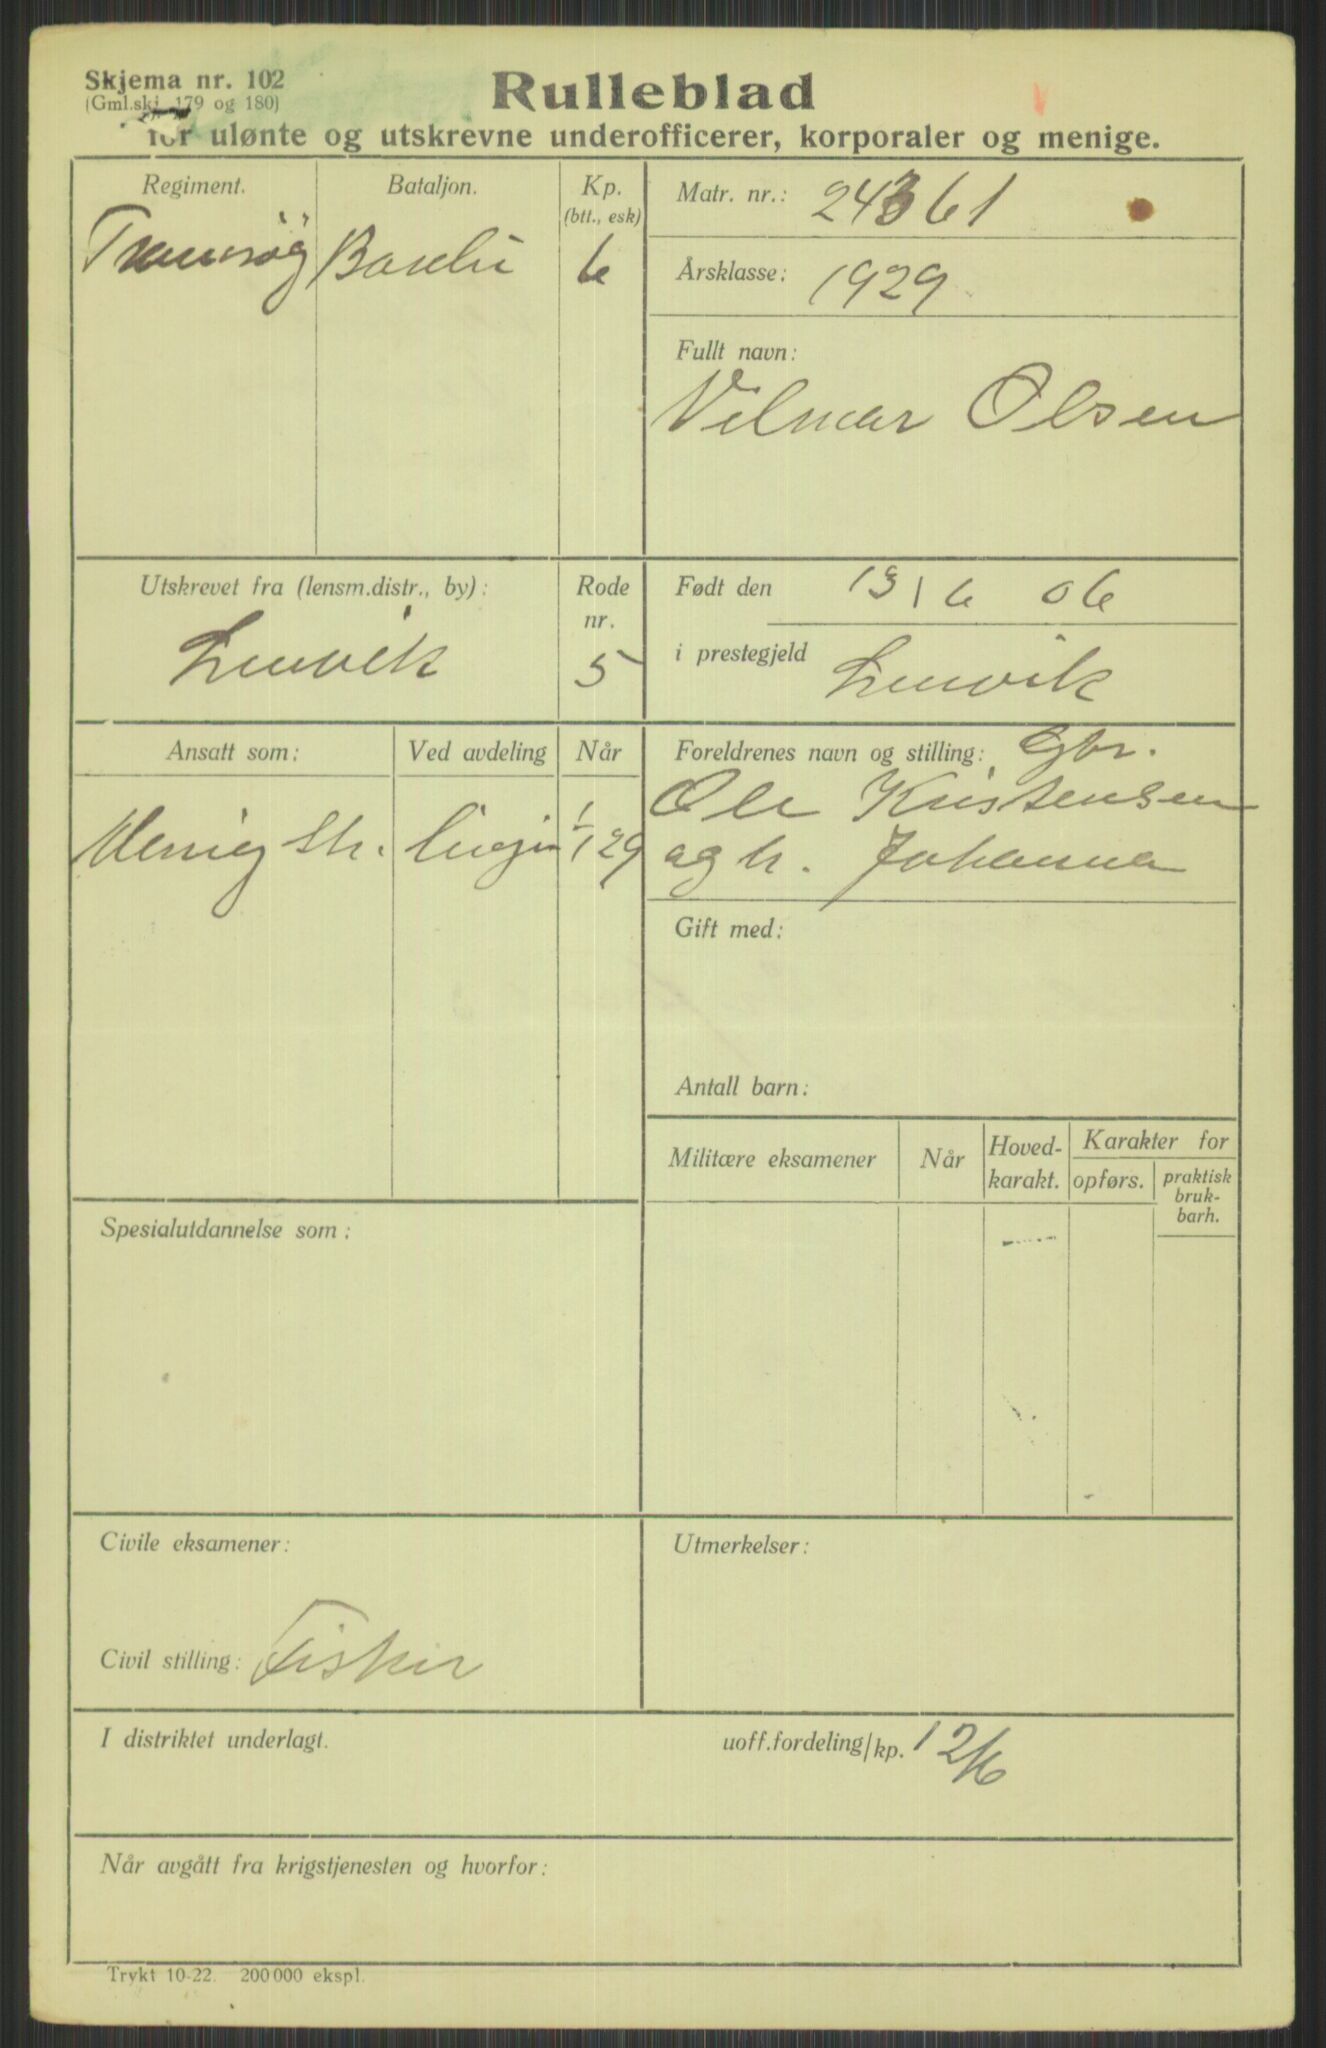 Skjema nr. 102
(Gml.skj. 179 og 180)
Rulleblad
for ulønte og utskrevne underofficerer, korporaler og menige.
Regiment. Bataljon. Kp.
(btt., esk)
6
Matr. nr.: 24361
Årsklasse: 1929
Fullt navn:
Vilmar Olsen
Utskrevet fra (lensm.distr., by): Rode nr.
Lenvik 5
Født den 13/6 06
i prestegjeld Lenvik
Ansatt som: Ved avdeling Når
Menig Str. Linjen 1/1 29
Foreldrenes navn og stilling: Gbr.
Ole Kristensen
og h. Johanna
Gift med:
Antall barn:
Militære eksamener Når Hoved-karakt. Karakter for
opførs. praktisk bruk-barh.
Spesialutdannelse som:
Civile eksamener:
Utmerkelser:
Civil stilling: Fisker
I distriktet underlagt. uoff.fordeling/kp. 12/6
Når avgått fra krigstjenesten og hvorfor:
Trykt 10-22. 200 000 ekspl.